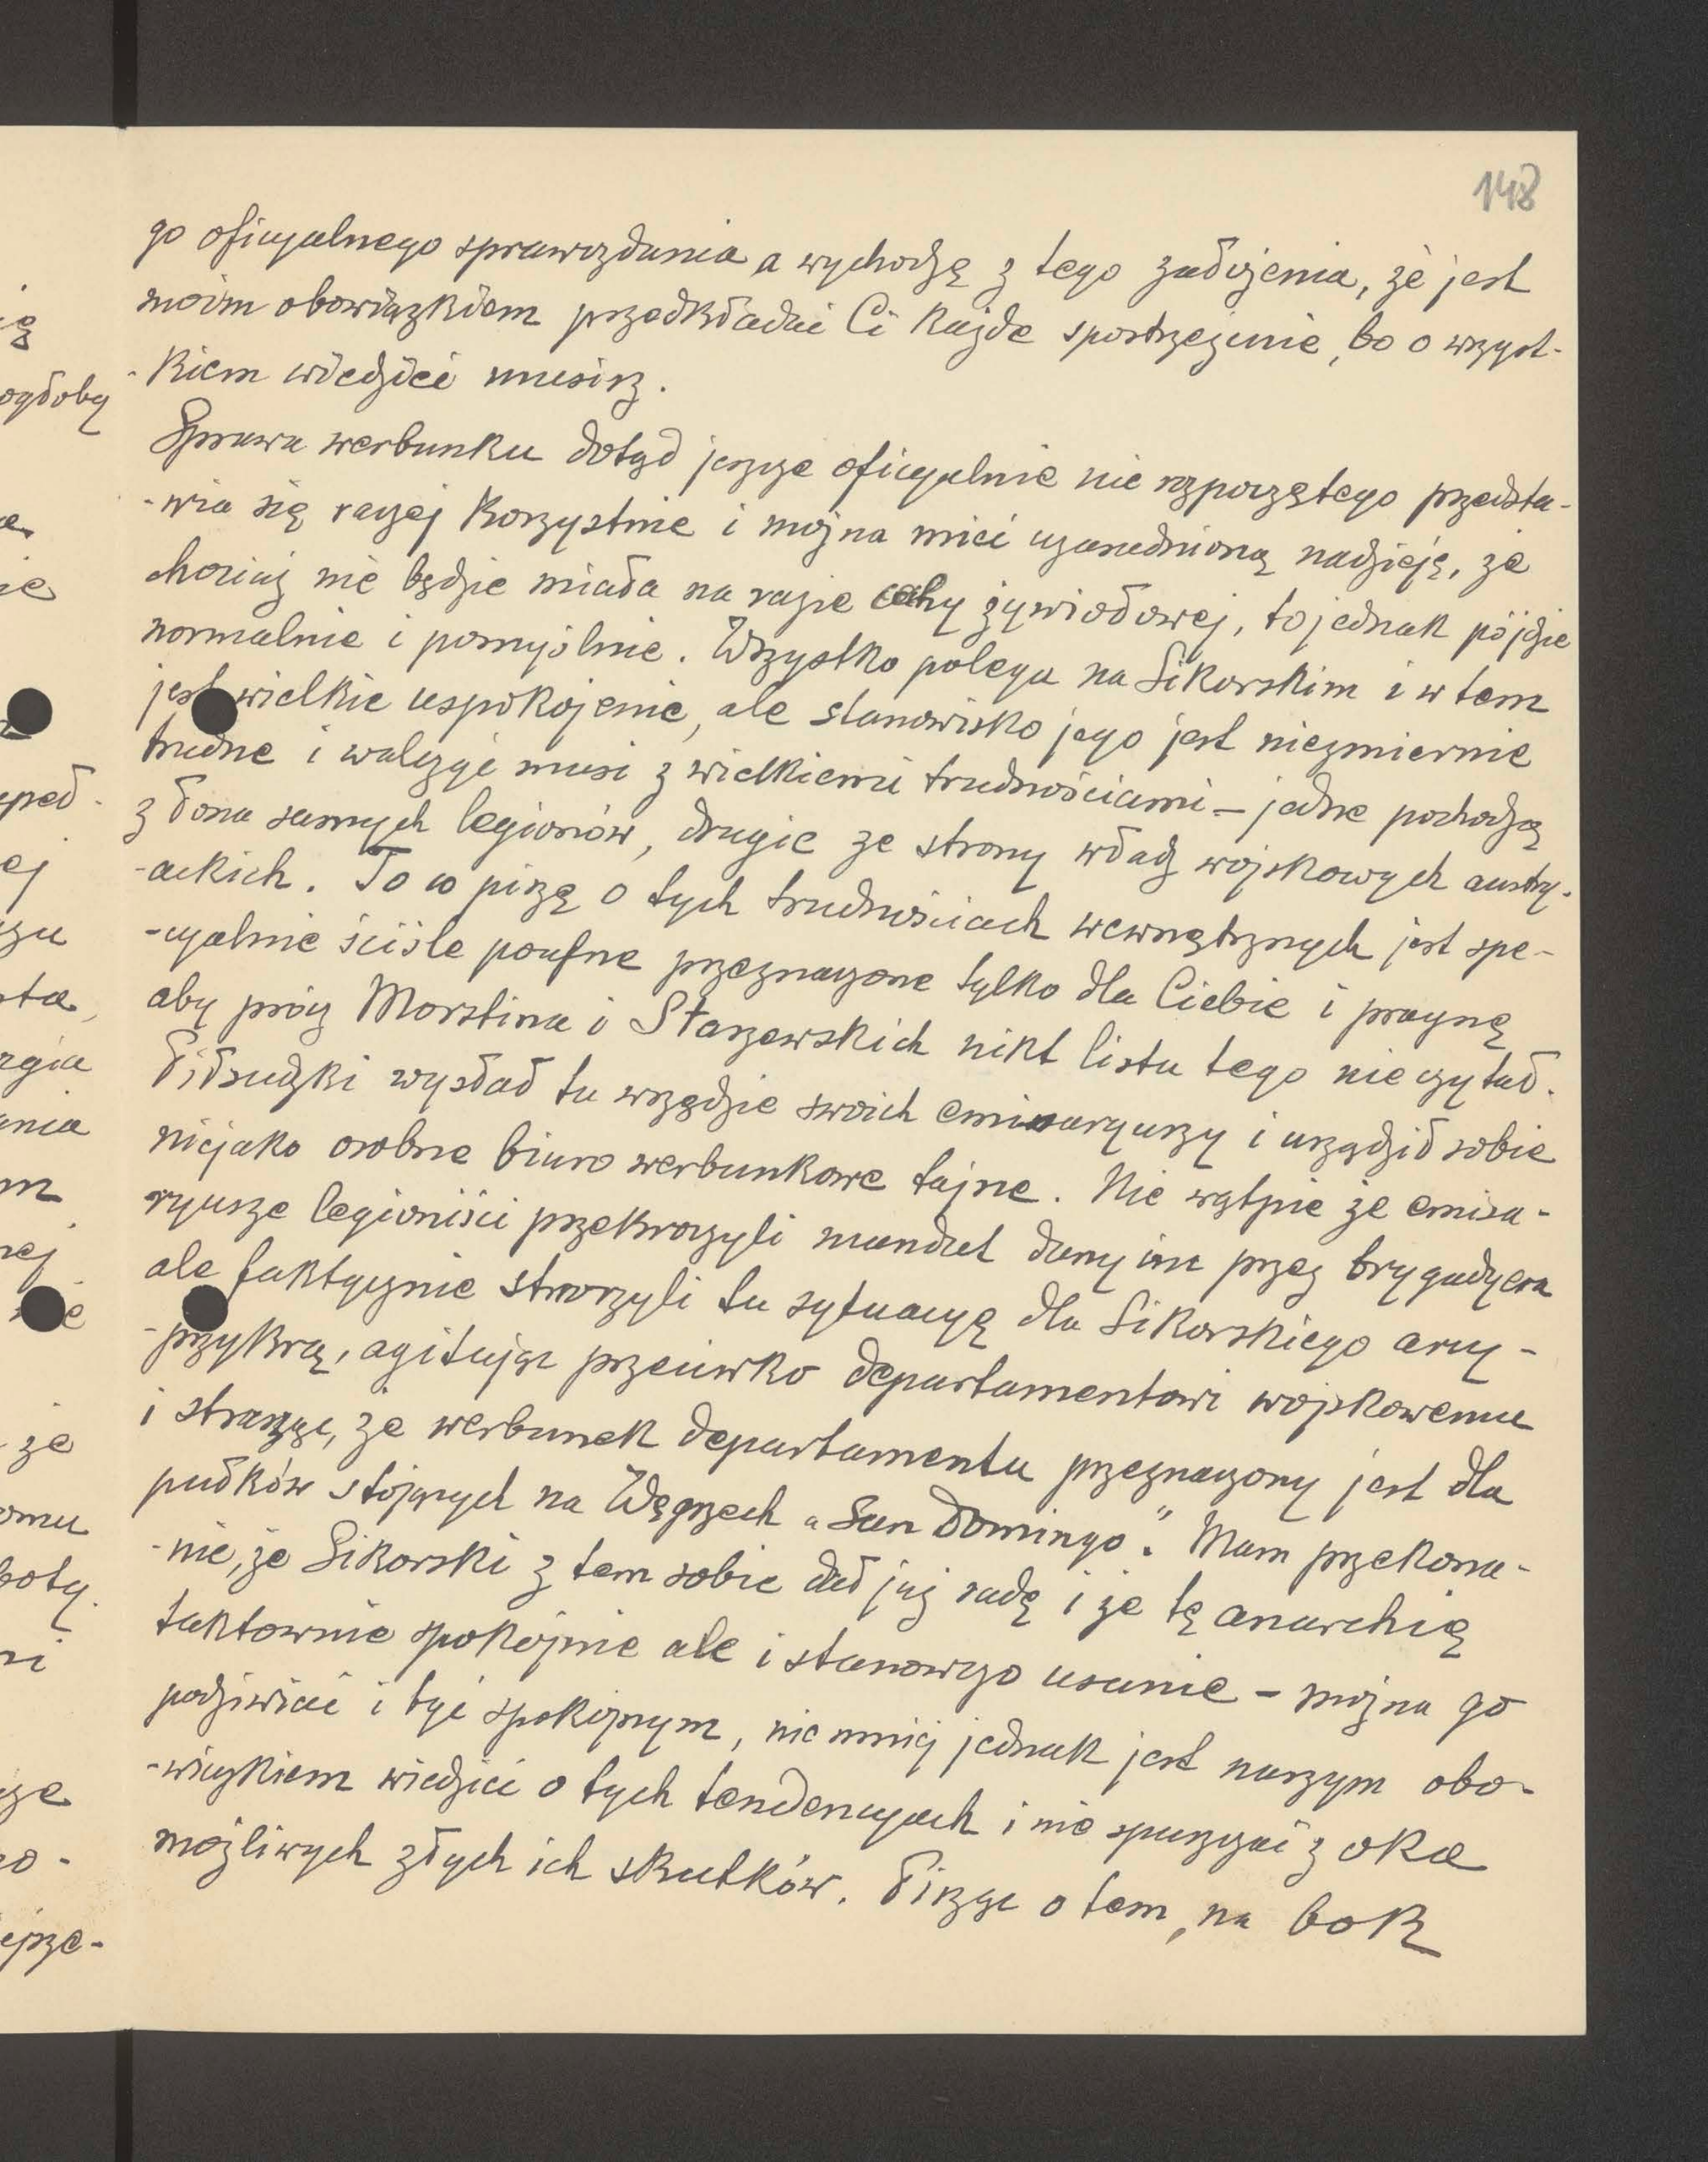 148
go oficyalnego sprawozdania a wychodzę z tego założenia, że jest
moim obowiązkiem przedkładać Ci każde spostrzeżenie, bo o wszyst-
-kiem wiedzieć musisz.
Sprawa werbunku dotąd jeszcze oficyalnie nie rozpoczętego przedsta-
-wia się raczej korzystnie i można mieć uzasadnioną nadzieję, że
chociaż nie będzie miała na razie cechy żywiołowej, to jednak pójdzie
normalnie i pomyślnie. Wszystko polega na Sikorskim i w tem
jest wielkie uspokojenie, ale stanowisko jego jest niezmiernie
trudne i walczyć musi z wielkiemi trudnościami – jedne pochodzą
z łona samych legionów, drugie ze strony władz wojskowych austry-
-ackich. To co piszę o tych trudnościach wewnętrznych jest spe-
-cyalnie ściśle poufne przeznaczone tylko dla Ciebie i pragnę
aby prócz Morstina i Starzewskich nikt listu tego nie czytał.
Piłsudzki wysłał tu wszędzie swoich emisaryuszy i urządził sobie
niejako osobne biuro werbunkowe tajne. Nie wątpię że emisa-
ryusze legioniści przekroczyli mandat dany im przez brygadyera
ale faktycznie stworzyli tu sytuacyę dla Sikorskiego arcy-
-przykrą, agitując przeciwko departamentowi wojskowemu
i strasząc, że werbunek departamentu przeznaczony jest dla
pułków stojących na Węgrzech „San Domingo". Mam przekona-
-nie, że Sikorski z tem sobie dał już radę i że tę anarchię
taktownie spokojnie ale i stanowczo usunie – można go
podziwiać i być spokojnym, nie mniej jednak jest naszym obo-
-wiązkiem wiedzieć o tych tendencyach i nie spuszczać z oka
możliwych złych ich skutków. Piszę o tem, na bok